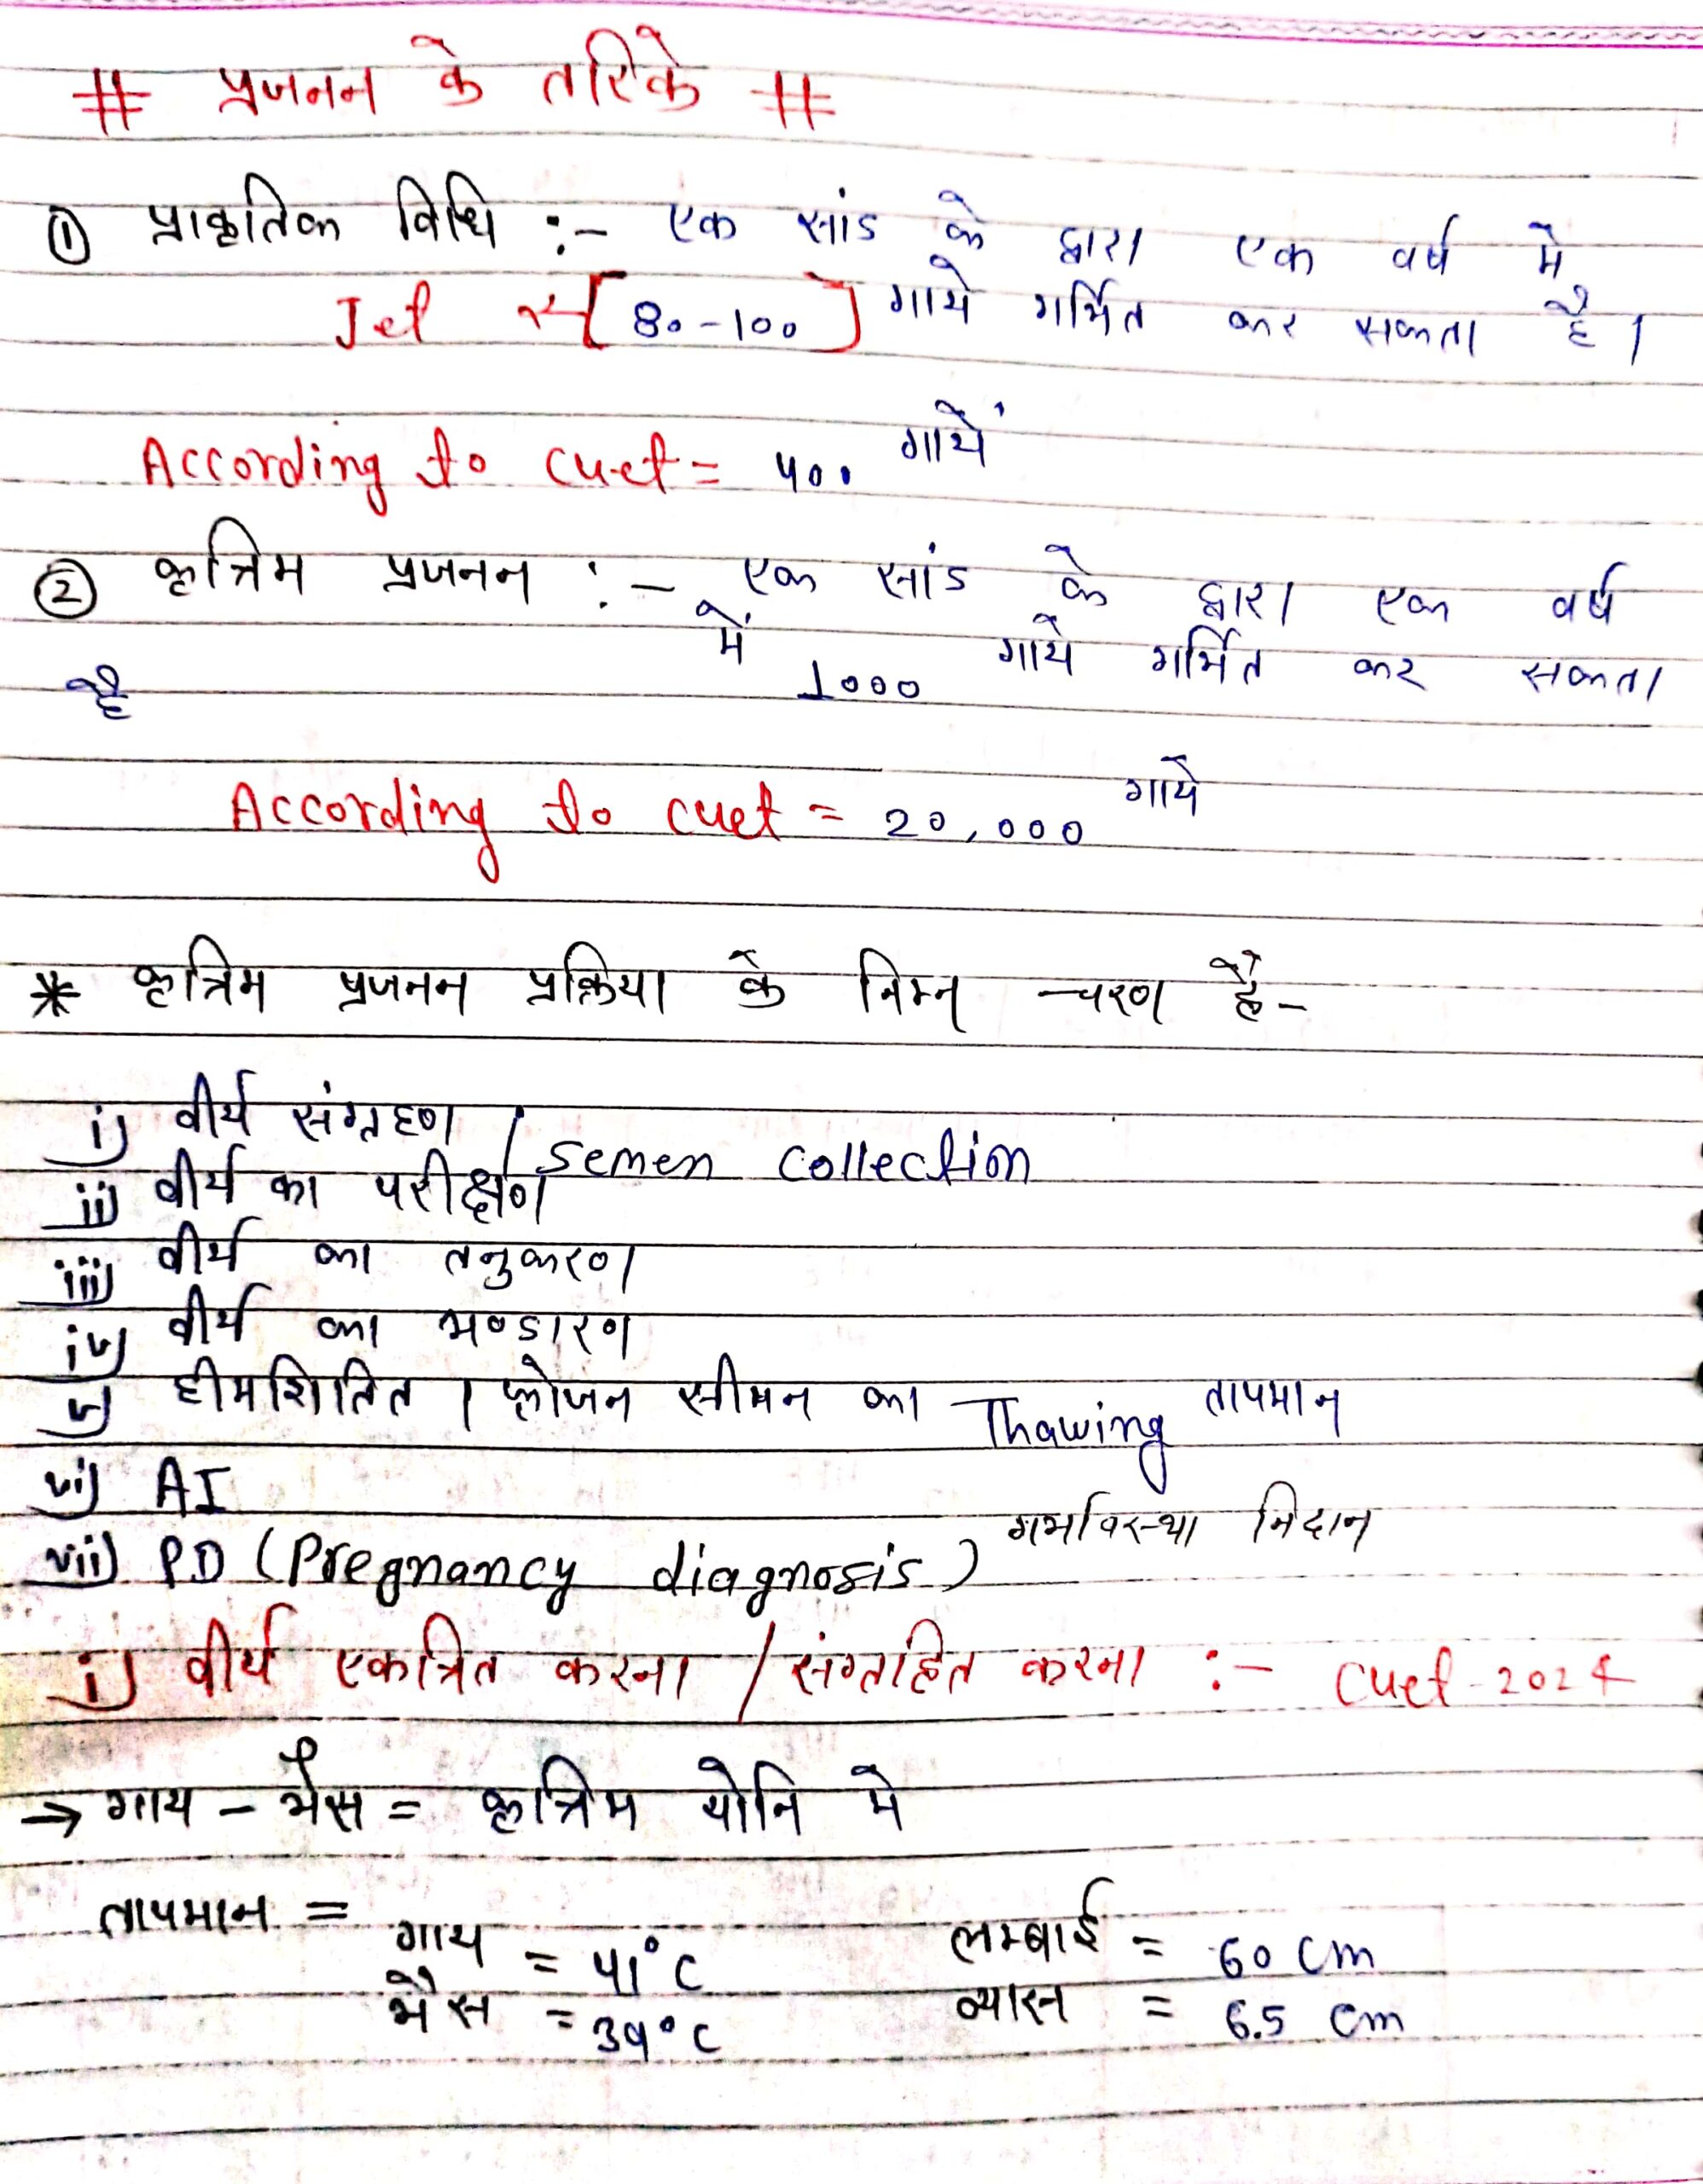 # प्रजनन के तरिके #
① प्राकृतिक विधि :- एक सांड के द्वारा एक वर्ष मे
Jet [80-100] गाये गर्भित कर सकता है।
According to cuet = 400 गायें
② कृत्रिम प्रजनन :- एक सांड के द्वारा एक वर्ष
में 1000 गाये गर्भित कर सकता
है
According to cuet = 20,000 गाये
* कृत्रिम प्रजनन प्रक्रिया के निम्न चरण है-
i) वीर्य संग्रहण / Semen collection
ii) वीर्य का परीक्षण
iii) वीर्य का तनुकरण
iv) वीर्य का भण्डारण
v) हीमशितित । फ्रोजन सीमन का Thawing तापमान
vi) AI
vii) P.D (Pregnancy diagnosis) गर्भावस्था निदान
i) वीर्य एकत्रित करना / संग्रहित करना :- Cuet-2024
→ गाय - भैंस = कृत्रिम योनि मे
तापमान = गाय = 41°C लम्बाई = 60 cm
भैस = 39°C व्यास = 6.5 cm